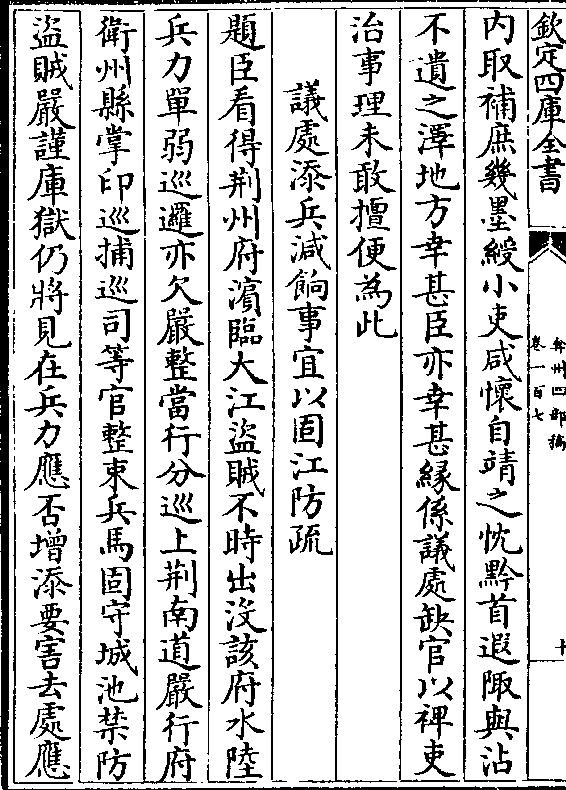 欽定四庫全書
弇州四部稿
卷一百七
十
内取補庶幾墨綬小吏咸懷自靖之忱黔首遐陬與沾
不遺之澤地方幸甚臣亦幸甚縁係議處缺官以裨吏
治事理未敢擅便為此
議處添兵減餉事宜以固江防疏
題臣看得荆州府濱臨大江盜賊不時出没該府水陸
兵力單弱巡邏亦欠嚴整當行分巡上荆南道嚴行府
衛州縣掌印巡捕巡司等官整束兵馬固守城池禁防
盜賊嚴謹庫獄仍將見在兵力應否增添要害去處應